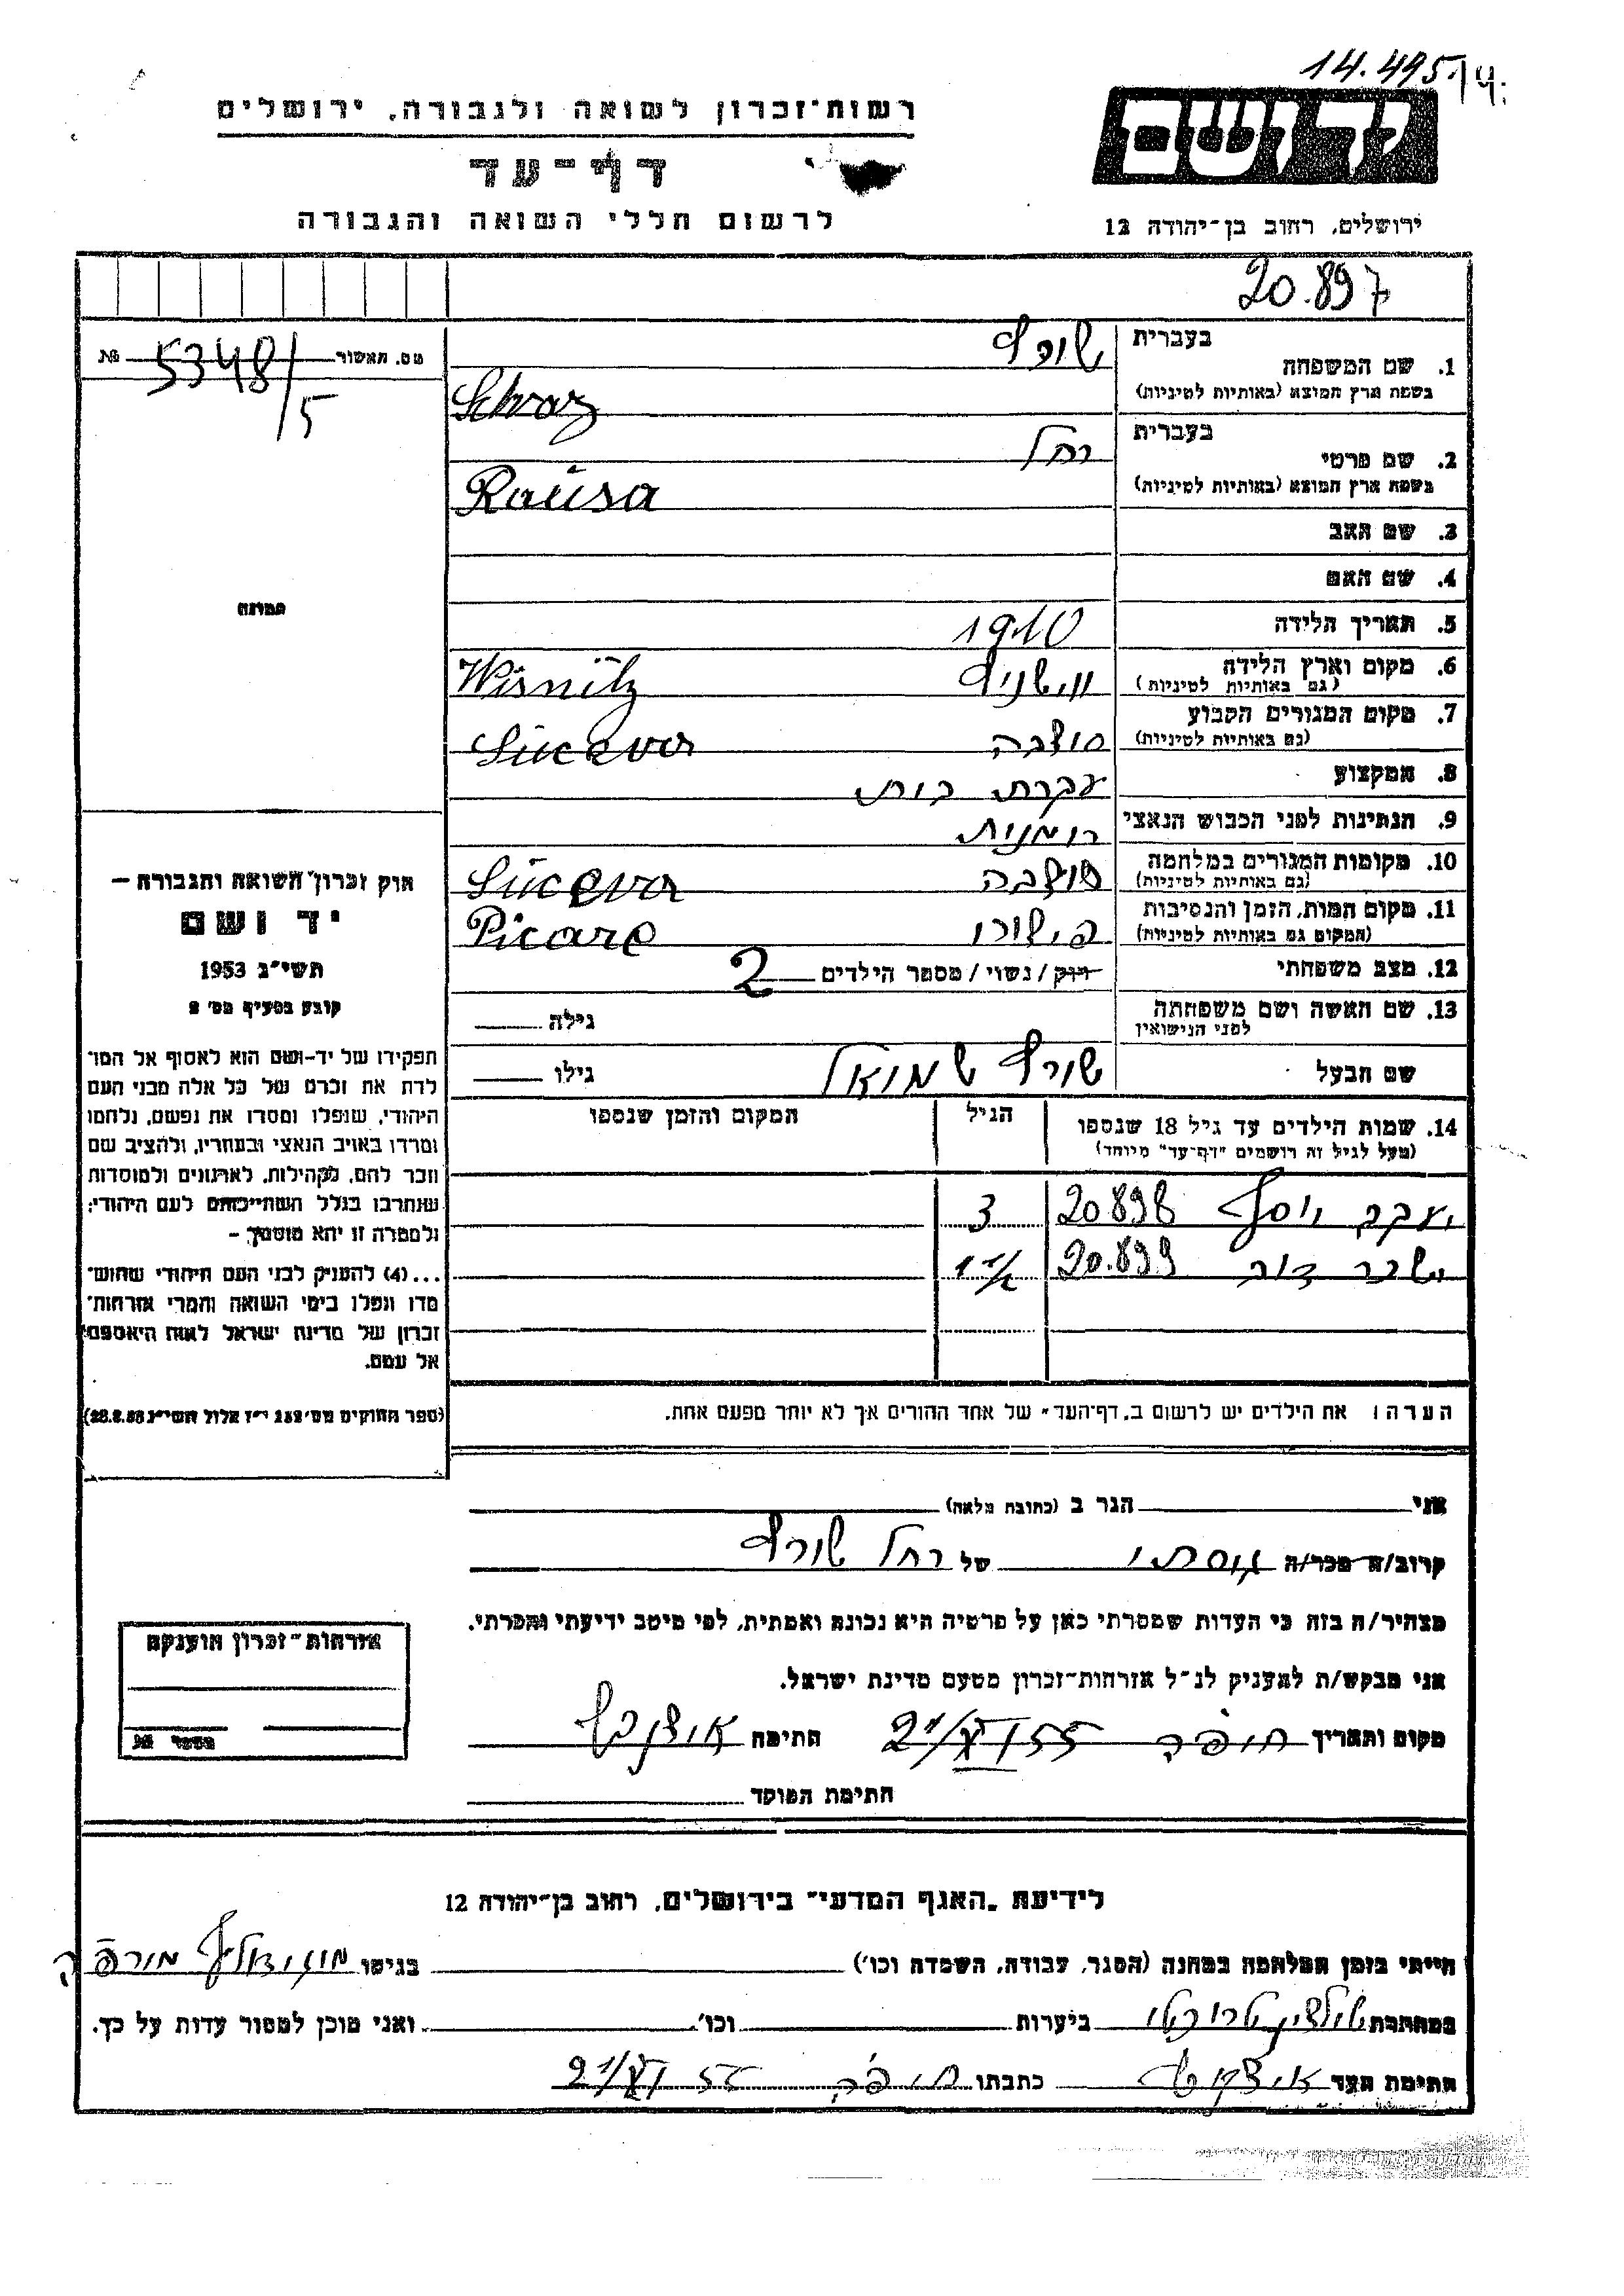 14.495/ч.
רשות־זכרון לשואה ולגבורה, ירושלים
יד ושם
דף־עד
לרשום חללי השואה והגבורה
ירושלים, רחוב בן־יהודה 12
20.897
מס. תאשור № 5348/5
בעברית שורץ
1. שם המשפחה
בשפת ארץ המוצא (באותיות לטיניות) Schvarz
בעברית רחל
2. שם פרטי
בשפת ארץ המוצא (באותיות לטיניות) Raüsa
3. שם האב
4. שם האם
תמונה
5. תאריך הלידה 1910
6. מקום וארץ הלידה וישניץ Wisnitz
(גם באותיות לטיניות)
7. מקום המגורים הקבוע סוצבה Suceva
(גם באותיות לטיניות)
8. המקצוע עקרת בית
9. הנתינות לפני הכבוש הנאצי רומנית
10. מקומות המגורים במלחמה סוצבה Suceva
(גם באותיות לטיניות)
11. מקום המות, הזמן והנסיבות Picare
(המקום גם באותיות לטיניות)
12. מצב משפחתי רוק / נשוי / מספר הילדים 2
13. שם האשה ושם משפחתה גילה
לפני הנישואין
שם הבעל שורץ שמואל גילו
14. שמות הילדים עד גיל 18 שנספו הגיל המקום והזמן שנספו
(מעל לגיל זה רושמים "דף־עד" מיוחד)
יעקב יוסף 20898 3
ישכר דוב 20.899 1 1/2
הערה: את הילדים יש לרשום ב"דף־העד" של אחד ההורים אך לא יותר מפעם אחת.
חוק זכרון השואה והגבורה –
יד ושם
תשי"ג 1953
קובע בסעיף מס' 2
תפקידו של יד-ושם הוא לאסוף אל המו־
לדת את זכרם של כל אלה מבני העם
היהודי, שנפלו ומסרו את נפשם, נלחמו
ומרדו באויב הנאצי ובעוזריו, ולהציב שם
וזכר להם, לקהילות, לארגונים ולמוסדות
שנחרבו בגלל השתייכותם לעם היהודי;
ולמטרה זו יהא מוסמך –
...(4) להעניק לבני העם היהודי שהוש־
מדו ונפלו בימי השואה והמרי אזרחות־
זכרון של מדינת ישראל לאות היאספם
אל עמם.
(ספר החוקים מס' 132 י"ז אלול תשי"ג 28.8.53)
אני הגר ב (כתובת מלאה)
קרוב/ה מכר/ה של רחל שורץ
מצהיר/ה בזה כי העדות שמסרתי כאן על פרטיה היא נכונה ואמתית, לפי מיטב ידיעתי והכרתי.
אני מבקש/ת להעניק לנ"ל אזרחות־זכרון מטעם מדינת ישראל.
מקום ותאריך חיפה 21/XI 55 חתימה
חתימת הפוקד
אזרחות־זכרון הוענקה
מספר №
לידיעת "האגף המדעי" בירושלים, רחוב בן־יהודה 12
הייתי בזמן המלחמה במחנה (הסגר, עבודה, השמדה וכו') בגיטו מורפה
במחתרת ביערות וכו' ואני מוכן למסור עדות על כך.
חתימת העד כתבתו חיפה 21/XI 55